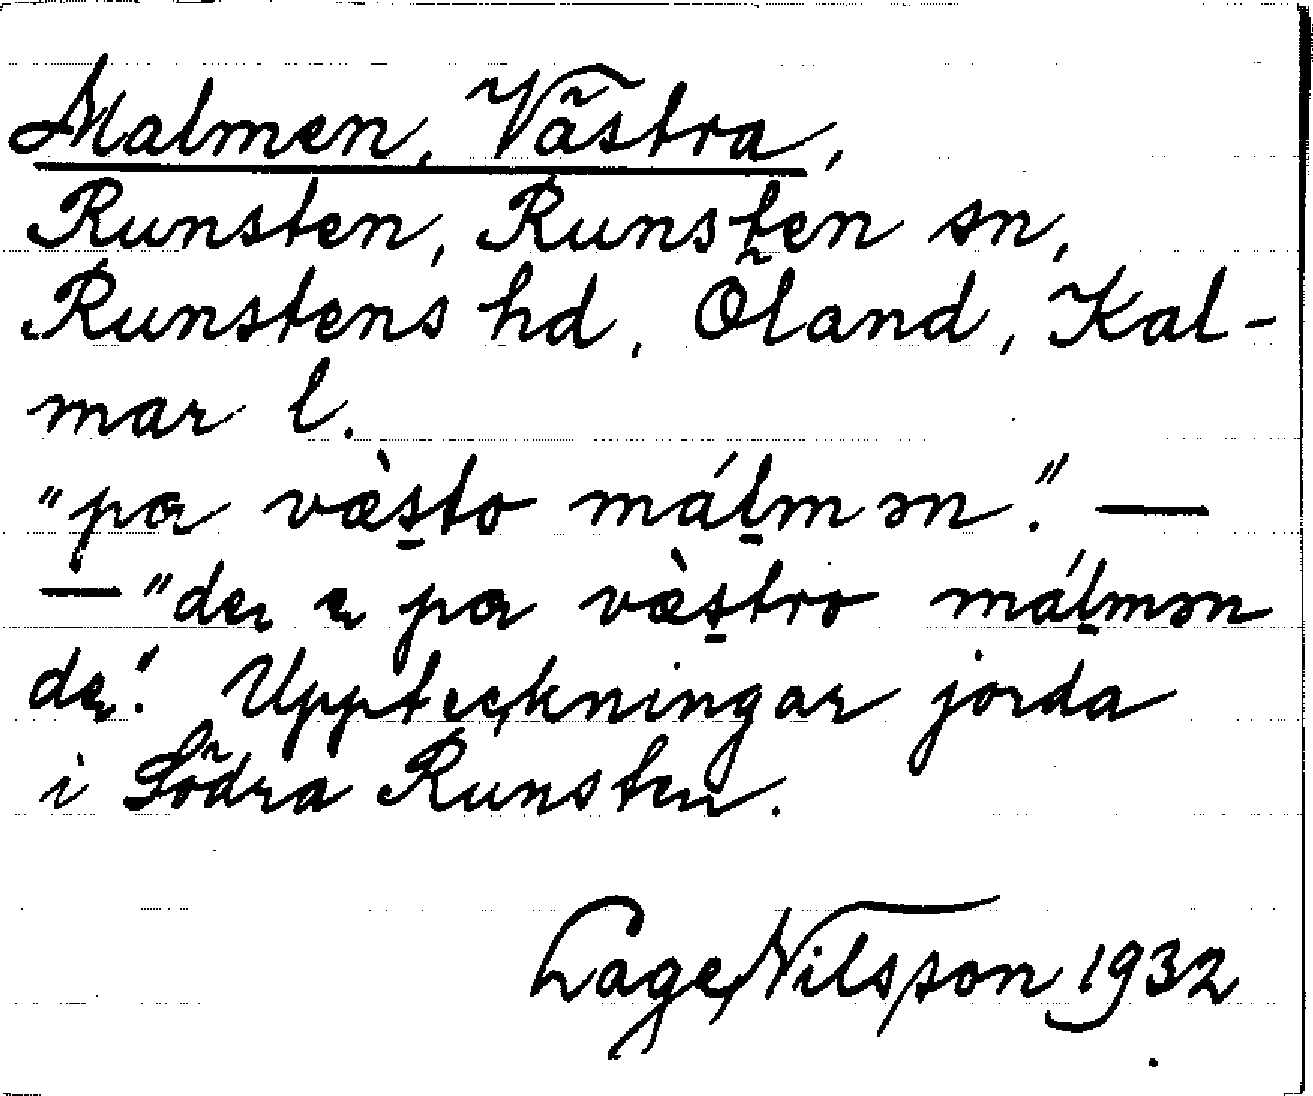 Malmen, Västra,
Runsten, Runsten sn,
Runstens hd, Öland, Kal-
mar l.
"pa væ̀s̱to málm̱ən". —
— "der æ pa væ̀s̱tro máḻmən
dær". Uppteckningar jorda
i Södra Runsten.
Lage Nilsson 1932